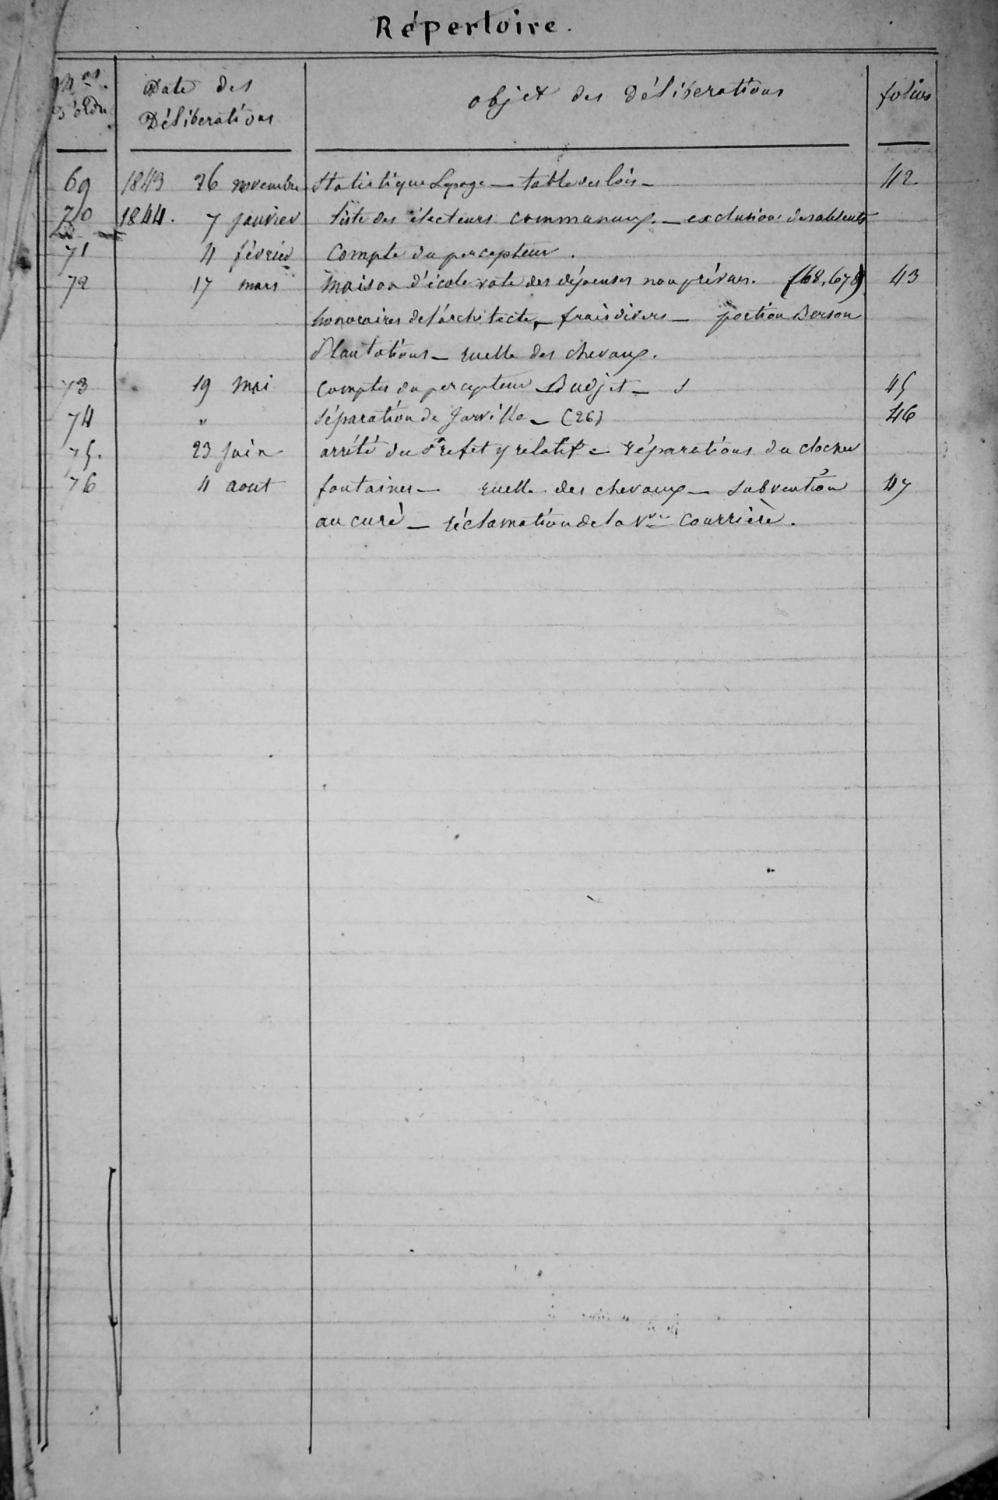 Répertoire.
Nos d'ordre Date des Délibérations objet des Délibérations folios
69 1843 26 novembre Statistique Lepage — table des lois — 42
70 1844. 7 janvier liste des électeurs communaux — exclusion des absents
71 4 février Compte du percepteur.
72 17 mars Maison d'école vote des dépenses non prévues. (68, 67) 43
honoraires de l'architecte, — frais divers — portion Berson
Plantations — ruelle des chevaux.
73 19 mai Comptes du percepteur Budjet — 45
74 " Séparation de Jarville — (26) 46
75. 23 juin arrêté du Préfet y relatif — réparations du clocher
76 4 aout fontaines — ruelle des chevaux — subvention 47
au curé — réclamation de la Vve Courrière.